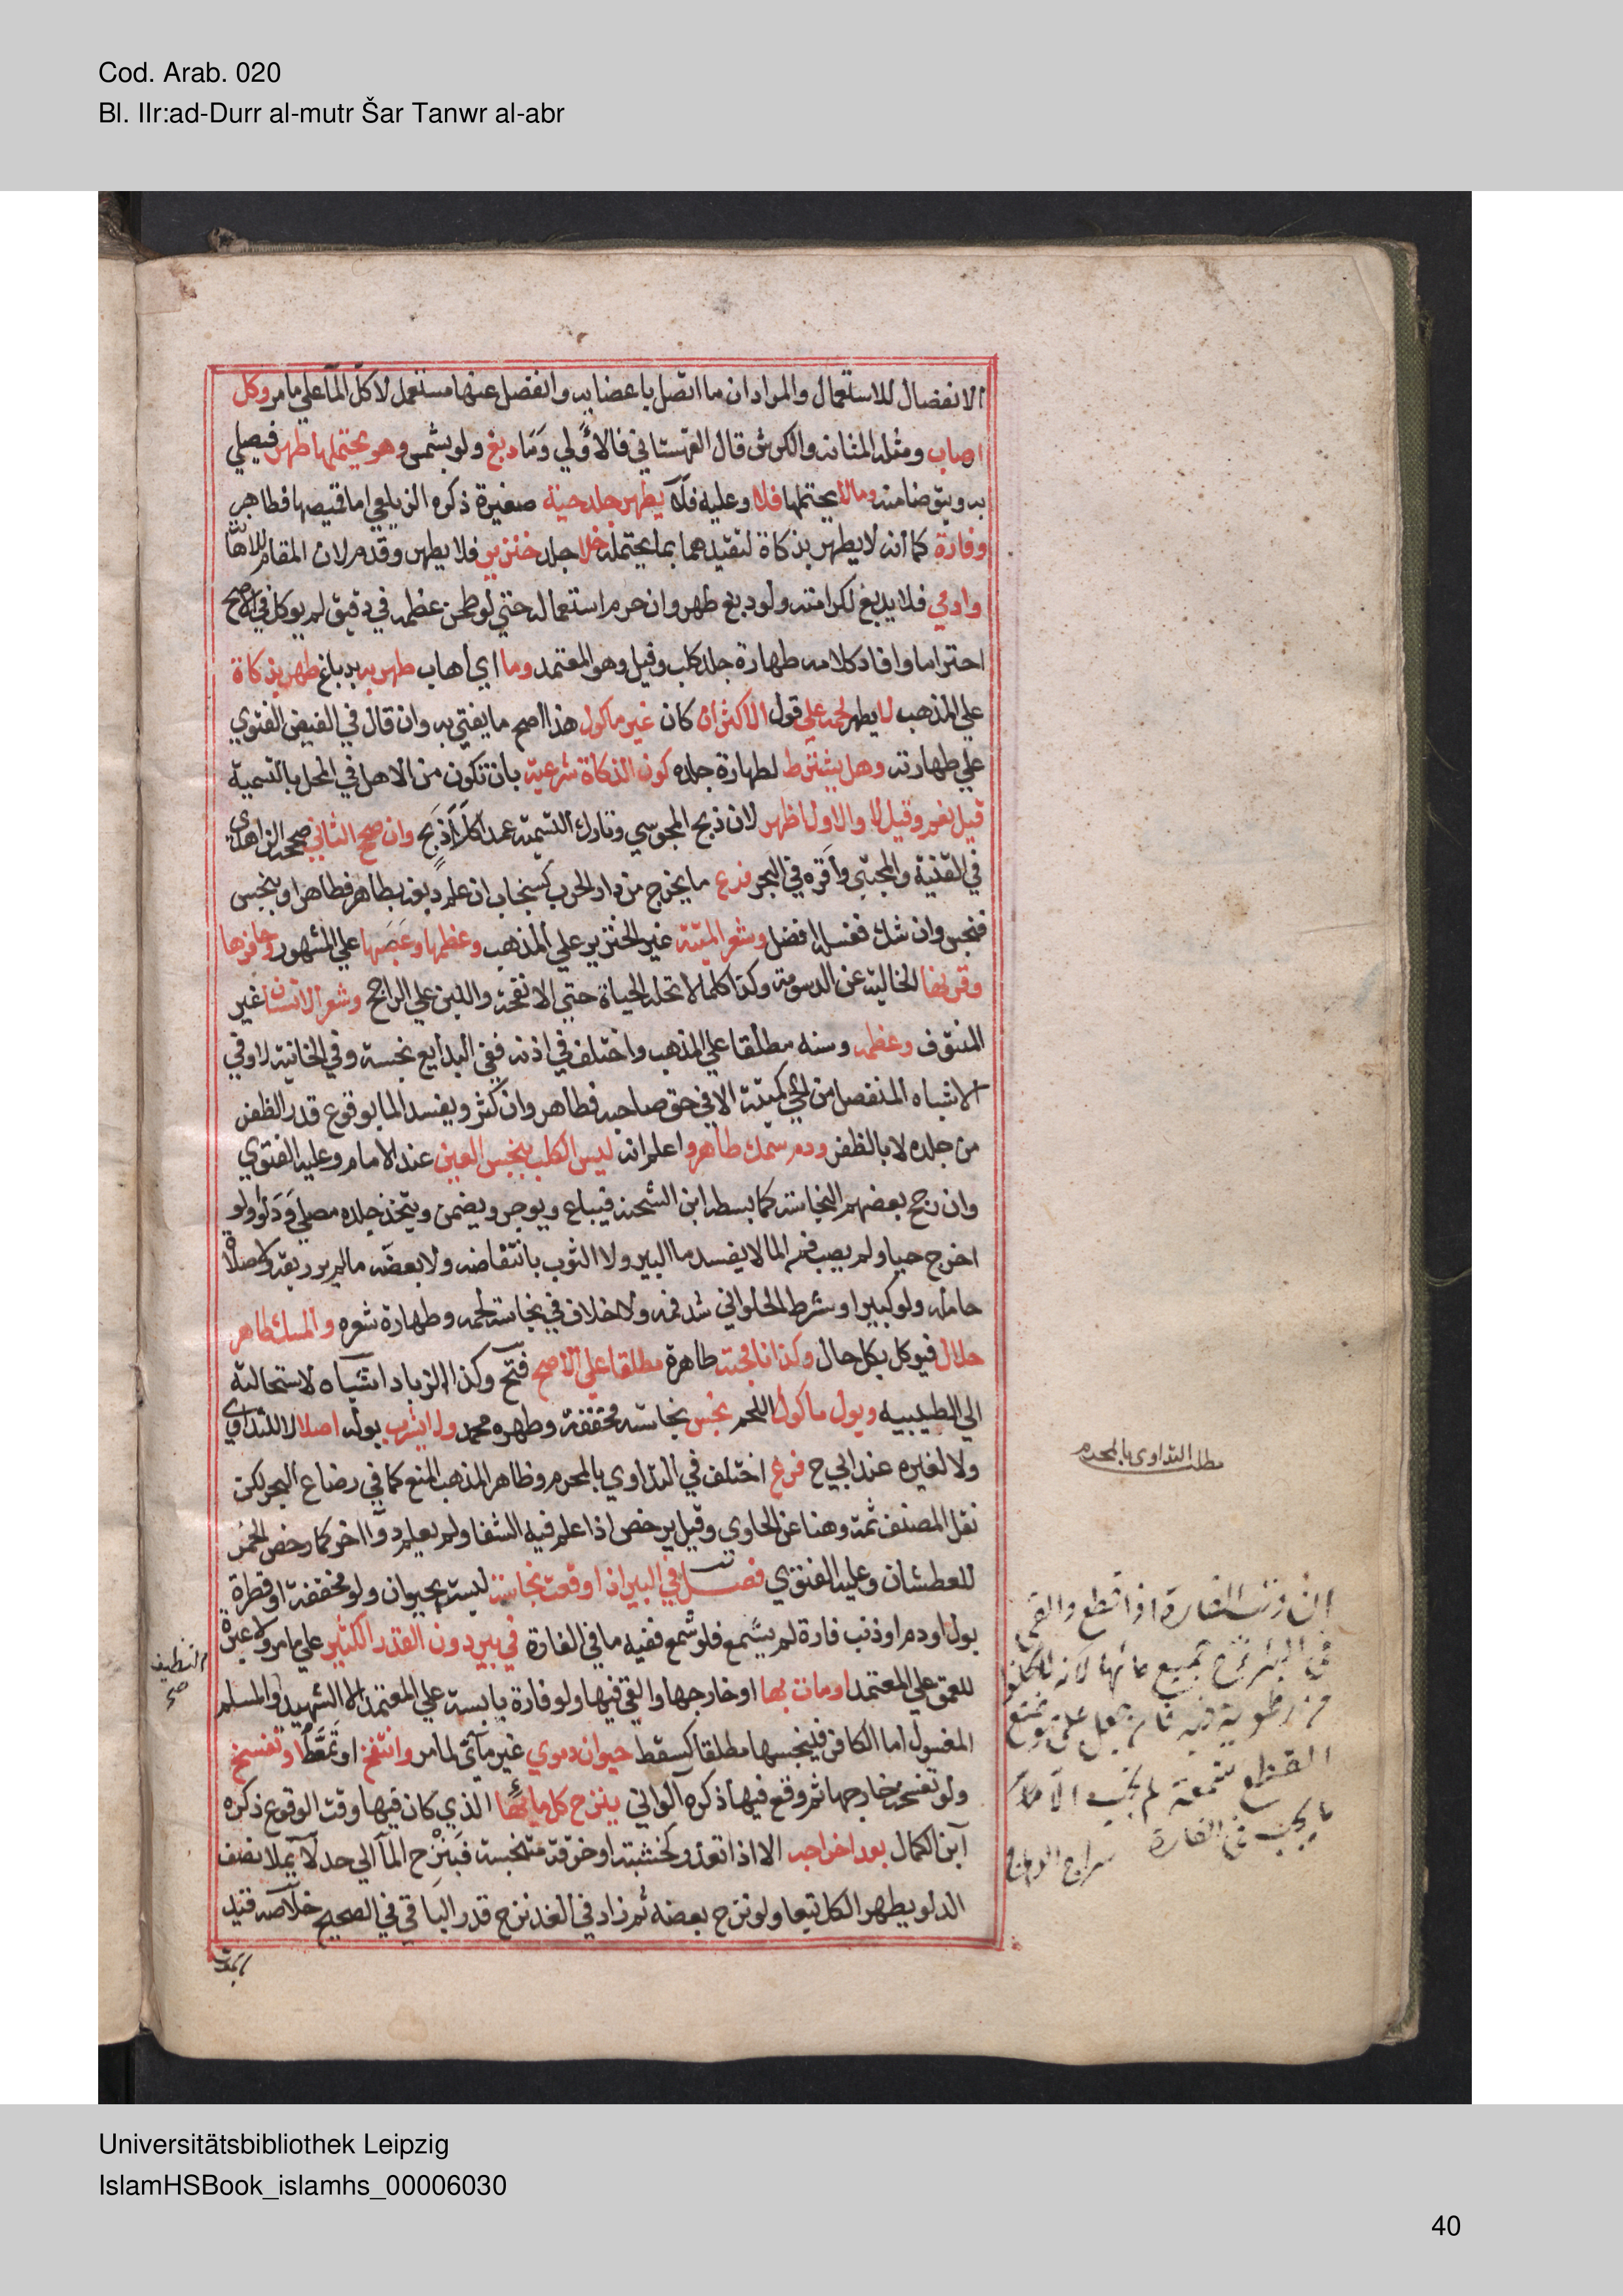 Cod. Arab. 020
Bl. IIr:ad-Durr al-mutr Šar Tanwr al-abr
الانفضال للاستعمال والمراد ان ما اتصل باعضايه وانفصل عنها مستعمل لا كل الماء علي ما مر وكل
اهاب ومثله المثانه والكرش قال القهستاني فالاولي وما دبغ ولو بشمس وهو يحتملها طهر فيصلي
به ويتوضا منه وما لا يحتملها فلا وعليه فلا يطهر جلد حية صغيرة ذكره الزيلعي اما قميصها فطاهر
وفارة كما انه لا يطهر بذكاة لتقيدهما بما يحتمله خلا جلد خنزير فلا يطهر وقدم لان المقام للاهانة
وادمي فلا يدبغ لكرامته ولو دبغ طهر وان حرم استعماله حتي لو طحن عظمه في دقيق لم يوكل في الاصح
احتراما وافاد كلامه طهارة جلد كلب وفيل وهو المعتمد وما اي اهاب طهر به بدباغ طهر بذكاة
علي المذهب لا يطهر لحمه علي قول الاكثر ان كان غير ماكول هذا اصح ما يفتي به وان قال في الفيض الفتوي
علي طهارته وهل يشترط لطهارة جلده كون الذكاة شرعية بان تكون من الاهل في المحل بالتسمية
قيل نعم وقيل لا والاول اظهر لان ذبح المجوسي وتارك التسمية عمدا كلا ذبح وان صح الثاني صححه الزاهدي
في القنية والمجتبي واقره في البحر فرع ما يخرج من دار الحرب كسنجاب ان علم دبغه بطاهر فطاهر او بنجس
فنجس وان شك فغسله افضل وشعر الميتة غير الخنزير علي المذهب وعظمها وعصبها علي المشهور وحافرها
وقرنها الخالية عن الدسومة وكذا كلما لا تحله الحياة حتي الانفحة واللبن علي الراجح وشعر الانسان غير
المنتوف وعظمه وسنه مطلقا علي المذهب واختلف في اذنه ففي البدايع نجسة وفي الخانية لا وفي
الاشباه المنفصل من الحي كميتة الا في حق صاحبه فطاهر وان كثر ويفسد الما بوقوع قدر الظفر
من جلده لا بالظفر ودم سمك طاهر واعلم انه ليس الكلب بنجس العين عند الامام وعليه الفتوي
وان رجح بعضهم النجاسة كما بسطه ابن الشحنه فيباع ويوجر ويضمن ويتخذ جلده مصلي ودلوا ولو
اخرج حيا ولم يصب فمه الما لا يفسد ما البير ولا الثوب بانتفاضه ولا بعضه ما لم ير ريقه ولا صلاة
حامله ولو كبيرا وشرط الحلواني شد فمه ولا خلاف في نجاسة لحمه وطهارة شعره والمسك طاهر
حلال فيوكل بكل حال وكذا نافجته طاهرة مطلقا علي الاصح فتح وكذا الزباد اشباه لاستحالته
الي الطيبيه وبول ماكول اللحم نجس نجاسة مخففة وطهره محمد ولا يشرب بوله اصلا لا للتداوي
ولا لغيره عند ابي ح فرع اختلف في التداوي بالمحرم وظاهر المذهب المنع كما في رضاع البحر لكن
نقل المصنف ثمة وهنا عن الحاوي وقيل يرخص اذا علم فيه الشفا ولم يعلم دوا اخر كما رخص الخمر
للعطشان وعليه الفتوي فصل في البير اذا وقعت نجاسة ليست بحيوان ولو مخففة او قطرة
بول او دم او ذنب فارة لم يشمع فلو شمع ففيه ما في الفارة في بير دون القدر الكثير علي ما مر ولا عبرة
للعمق علي المعتمد او مات بها او خارجها والقي فيها ولو فارة يابسة علي المعتمد الا الشهيد والمسلم
المغسول اما الكافر فينجسها مطلقا كسقط حيوان دموي غير مآئي لما مر وانتفخ او تمعط او تفسخ
ولو تفسخه خارجها ثم وقع فيها ذكره الواني ينزح كل مائها الذي كان فيها وقت الوقوع ذكره
ابن الكمال بعد اخراجه الا اذا تعذر كخشبة او خرقة متنجسة فبنزح الما الي حد لا يملا نصف
الدلو يطهر الكل تبعا ولو نزح بعضه ثم زاد في الغد نزح قدر الباقي في الصحيح خلاصه قيد
مطلب التداوي بالمحرم
ان ذنب الفارة اذا قطع والقي
في البئر نزح جميع مائها لانه لا يخلو
من رطوبة فيه فان جعل علي موضع
القطع شمعة لم يجب الا ما
يجب في الفارة سراج الوهاج
صح
Universitätsbibliothek Leipzig
IslamHSBook_islamhs_00006030
40